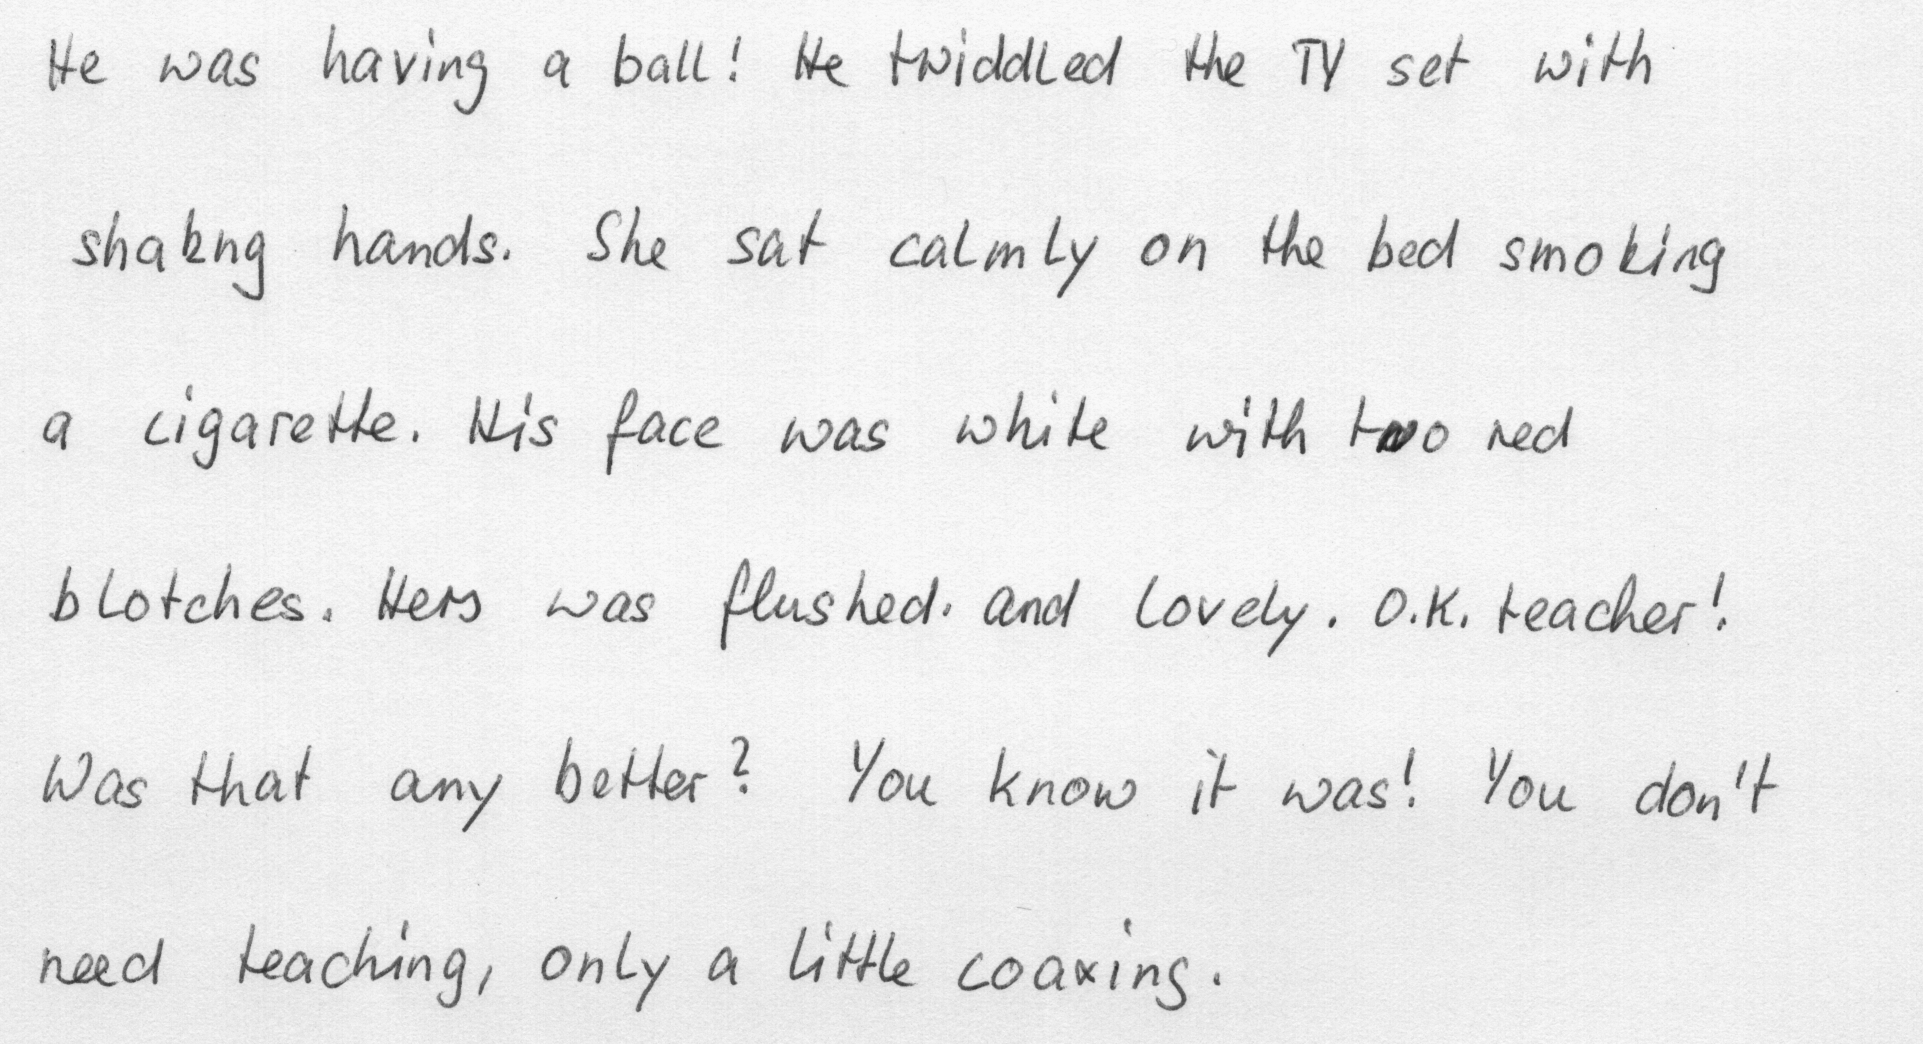 He was having a ball! He twiddled the TV set with
shakng hands. She sat calmly on the bed smoking
a cigarette. His face was white with two red
blotches. Hers was flushed. and lovely. O.K. teacher!
Was that any better? You know it was! You don't
need teaching, only a little coaxing.